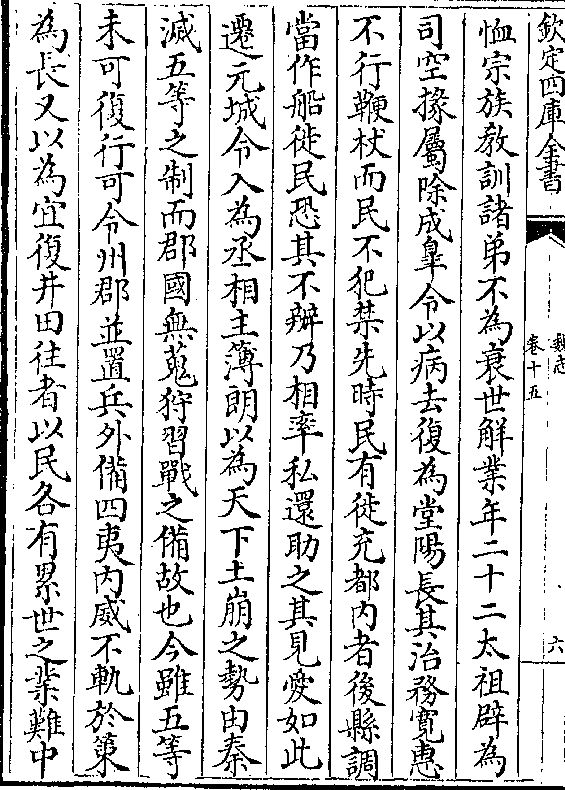 欽定四庫全書
魏志
卷十五
六
恤宗族教訓諸弟不為衰世解業年二十二太祖辟為
司空掾屬除成臯令以病去復為堂陽長其治務寛惠
不行鞭杖而民不犯禁先時民有徙充都内者後縣調
當作船徙民恐其不辦乃相率私還助之其見愛如此
遷元城令入為丞相主簿朗以為天下土崩之勢由秦
滅五等之制而郡國無蒐狩習戰之備故也今雖五等
未可復行可令州郡並置兵外備四夷内威不軌於䇿
為長又以為宜復井田往者以民各有累世之業難中